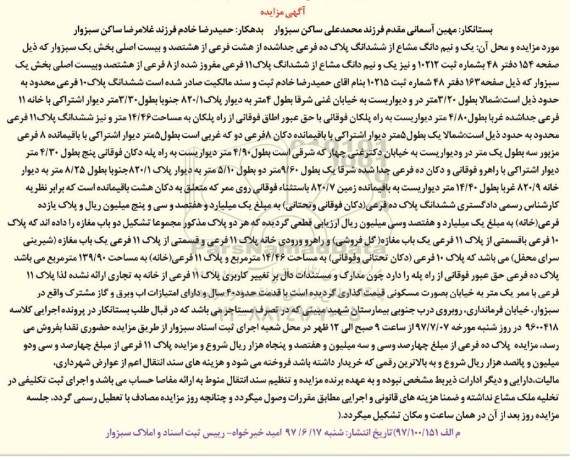 آگهی مزایده
بستانکار: مهین آسمانی مقدم فرزند محمدعلی ساکن سبزوار بدهکار: حمیدرضا خادم فرزند غلامرضا ساکن سبزوار
مورد مزایده و محل آن: یک و نیم دانگ مشاع از ششدانگ پلاک ده فرعی جداشده از هشت فرعی از هشتصد و بیست اصلی بخش یک سبزوار که ذیل
صفحه ۱۵۴ دفتر ۴۸ بشماره ثبت ۱۰۲۱۲ و نیز یک و نیم دانگ مشاع از ششدانگ پلاک۱۱ فرعی مفروز شده از ۸ فرعی از هشتصد وبیست اصلی بخش یک
سبزوار که ذیل صفحه۱۶۳ دفتر ۴۸ شماره ثبت ۱۰۲۱۵ بنام اقای حمیدرضا خادم ثبت و سند مالکیت صادر شده است ششدانگ پلاک۱۰ فرعی محدود به
حدود ذیل است:شمالا بطول ۳/۲۰متر در و دیواریست به خیابان غنی شرقا بطول ۴متر به دیوار پلاک۸۲۰/۱ جنوبا بطول۳/۳۰متر دیوار اشتراکی با خانه ۱۱
فرعی جداشده غربا بطول ۴/۸۰ متر دیواریست به راه پلکان فوقانی با حق عبور اطاق فوقانی از راه پلکان به مساحت۱۴/۴۶متر و نیز ششدانگ پلاک۱۱
محدود به حدود ذیل است:شمالا یک بطول۵متر دیوار اشتراکی با باقیمانده دکان ۸فرعی دو که غربی است بطول۵متر دیوار اشتراکی با باقیمانده ۸ فرعی
مزبور سه بطول یک متر در ودیواریست به خیابان دکترغنی چهار که شرقی است بطول۴/۹۰ متر دیواریست به راه پله دکان فوقانی پنج بطول ۴/۳۰ متر
دیوار اشتراکی با راهرو فوقانی و دکان ده فرعی جدا شده شرقا یک بطول ۹/۶۰متر دو بطول ۵/۱۰ متر به دیوار پلاک ۸۲۰/۱جنوبا بطول ۸/۲۵ متر به دیوار
خانه ۸۲۰/۹ غربا بطول ۱۴/۴۰ متر دیواریست به باقیمانده زمین ۸۲۰/۷ باستثناء فوقانی روی ممر که متعلق به دکان هشت باقیمانده است که برابر نظریه
کارشناس رسمی دادگستری ششدانگ پلاک ده فرعی(دکان فوقانی وتحتانی) به مبلغ یک میلیارد و هفتصد و سی و پنج میلیون ریال و پلاک یازده
فرعی(خانه) به مبلغ یک میلیارد و هفتصد وسی میلیون ریال ارزیابی قطعی گردیده که هر دو پلاک مذکور مجموعا تشکیل دو باب مغازه را داده اند که پلاک
۱۰ فرعی باقسمتی از پلاک ۱۱ فرعی یک باب مغازه( گل فروشی) و راهرو ورودی خانه پلاک ۱۱ فرعی و قسمتی از پلاک ۱۱ فرعی یک باب مغازه (شیرینی
سرای محفل) می باشد که پلاک ۱۰ فرعی (دکان تحتانی وفوقانی) به مساحت ۱۴/۴۶ مترمربع و پلاک ۱۱ فرعی(خانه) به مساحت ۱۳۹/۹۰ مترمربع می باشد
پلاک ده فرعی حق عبور فوقانی از راه پله را دارد چون مدارک و مستندات دال بر تغییر کاربری پلاک ۱۱ فرعی از خانه به تجاری ارائه نشده لذا پلاک ۱۱
فرعی با ممر یک متر به خیابان بصورت مسکونی قیمت گذاری گردیده است با قدمت حدود۴۰ سال و دارای امتیازات اب وبرق و گاز مشترک واقع در
سبزوار، خیابان فرمانداری، روبروی درب جنوبی بیمارستان شهید مبینی که در تصرف مستاجر می باشد که در قبال طلب بستانکار در پرونده اجرایی کلاسه
۹۶۰۰۴۱۸ در روز شنبه مورخه ۹۷/۷/۰۷ از ساعت ۹ صبح الی ۱۲ ظهر در محل شعبه اجرای ثبت اسناد سبزوار از طریق مزایده حضوری نقدا بفروش می
رسد، مزایده پلاک ده فرعی از مبلغ چهارصد وسی و سه میلیون و هفتصد و پنجاه هزار ریال شروع و مزایده پلاک ۱۱ فرعی از مبلغ چهارصد و سی ودو
میلیون و پانصد هزار ریال شروع و به بالاترین رقمی که خریدار داشته باشد فروخته می شود و هزینه های سند انتقال اعم از عوارض شهرداری،
مالیات،دارایی و دیگر ادارات ذیربط مشخص نبوده و به عهده برنده مزایده و تنظیم سند انتقال منوط به ارائه مفاصا حساب می باشد و اجرای ثبت تکلیفی در
تخلیه ملک مشاع نداشته و ضمنا هزینه های قانونی و اجرایی مطابق مقررات وصول میگردد و چنانچه روز مزایده مصادف با تعطیل رسمی گردد، جلسه
مزایده روز بعد از آن در همان ساعت و مکان تشکیل میگردد.(
م الف ۹۷/۱۰۰/۱۵۱) تاریخ انتشار: شنبه ۱۷/ ۶/ ۹۷ امید خیرخواه- رییس ثبت اسناد و املاک سبزوار